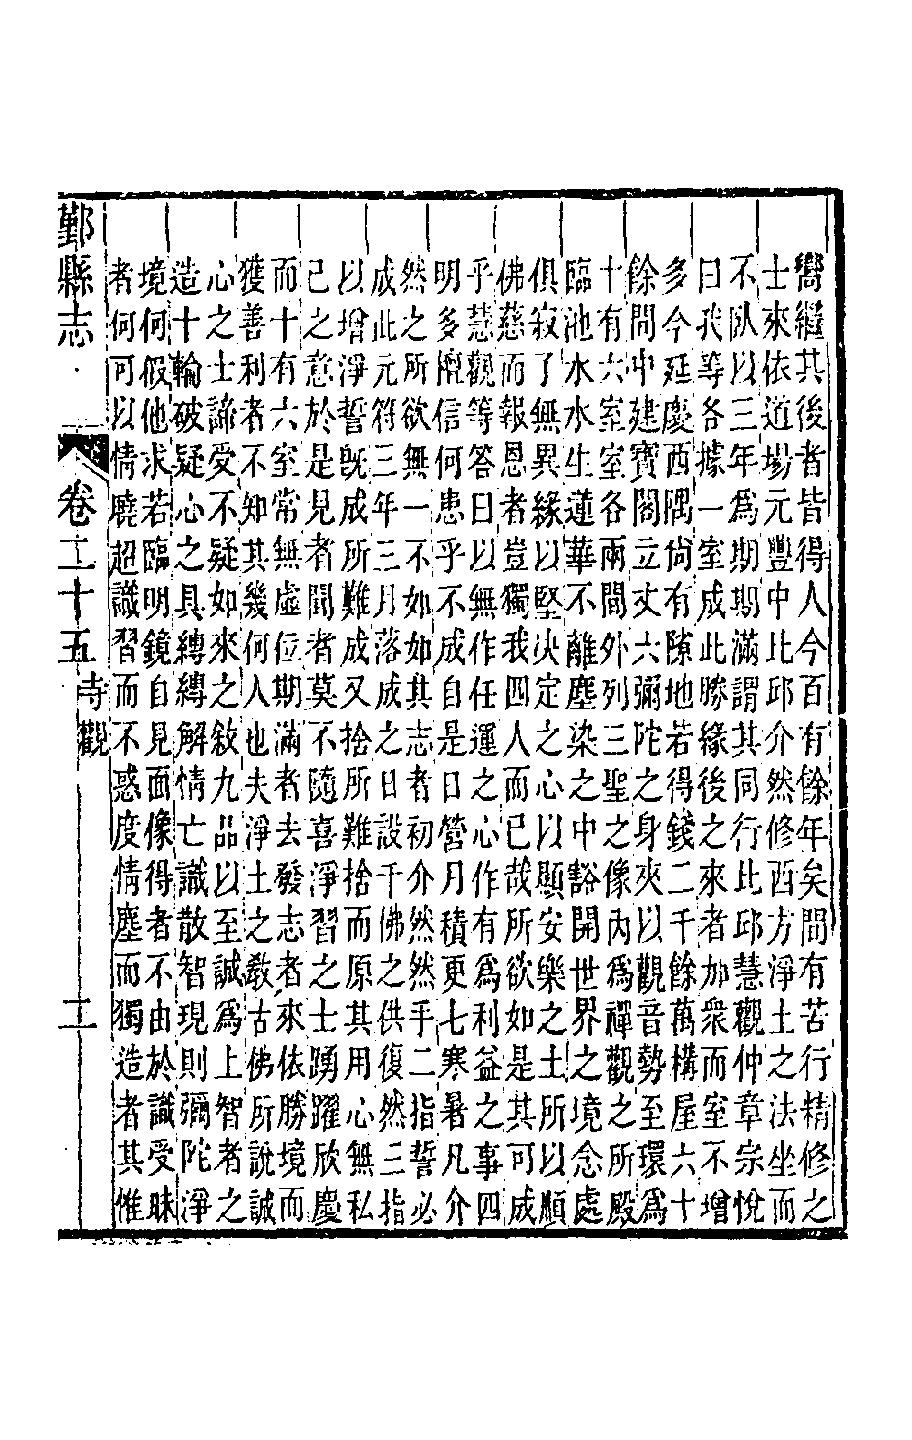 嚮繼其後者皆得人今百有餘年矣間有苦行精修之
士來依道場元豐中比邱介然修西方淨土之法坐而
不臥以三年爲期期滿謂其同行比邱慧觀仲章宗悅
曰我等各據一室成此勝緣後之來者加衆而室不增
多今延慶西隅尚有隙地若得錢二千餘萬構屋六十
餘間中建寶閣立丈六彌陀之身夾以觀音勢至環爲
十有六室室各兩間外列三聖之像內爲禪觀之所殿
臨池水水生蓮華不離塵染之中豁開世界之境念處
俱寂了無異緣以堅決定之心以顯安樂之土所以順
佛慈而報恩者豈獨我四人而已哉所欲如是其可成
乎慧觀等答曰以無作任運之心作有爲利益之事四
明多檀信何患乎不成自是日營月積更七寒暑凡介
然之所欲無一不如如其志者初介然然乎二指誓必
成此元符三年三月落成之日設千佛之供復然三指
以增淨誓既成所難成又捨所難捨而原其用心無私
己之意於是見者聞者莫不隨喜淨習之士踴躍欣慶
而十有六室常無虛位期滿者去發志者來依勝境而
獲善利者不知其幾何人也夫淨土之教古佛所說誠
心之士諦受不疑如來之敘九品以至誠爲上智者之
造十輪破疑心之具縛縛解情亡識散智現則彌陀淨
境何假他求若臨明鏡自見面像得者不由於識受昧
者何可以情曉超識習而不惑度情塵而獨造者其惟
鄞縣志 卷二十五 寺觀 二